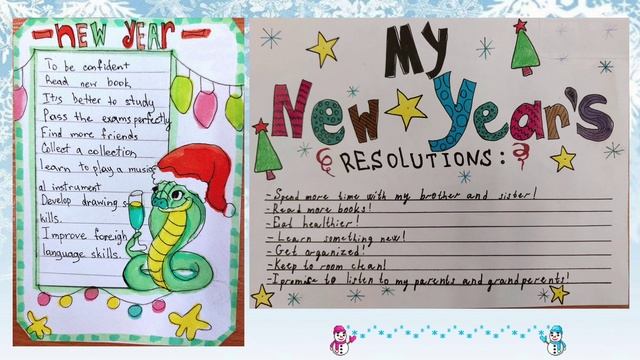 -NEW YEAR-
To be confident
Read new book
It's better to study
Pass the exams perfectly
Find more friends
Collect a collection
learn to play a music
al instrument
Develop drawing s
kills.
Improve foreigh
language skills.
MY
New Year's
RESOLUTIONS:
- Spend more time with my brother and sister!
- Read more books!
- Eat healthier!
- Learn something new!
- Get organized!
- Keep to room clean!
- I promise to listen to my parents and grandparents!